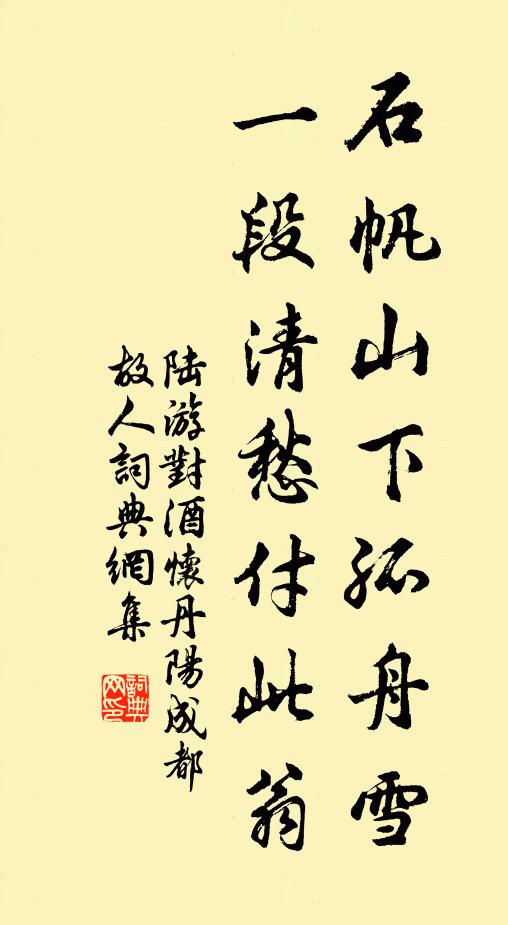 石帆山下孤舟雪
一段清愁付此翁
陆游對酒懷丹陽成都
故人詞典網集
詞典
网印